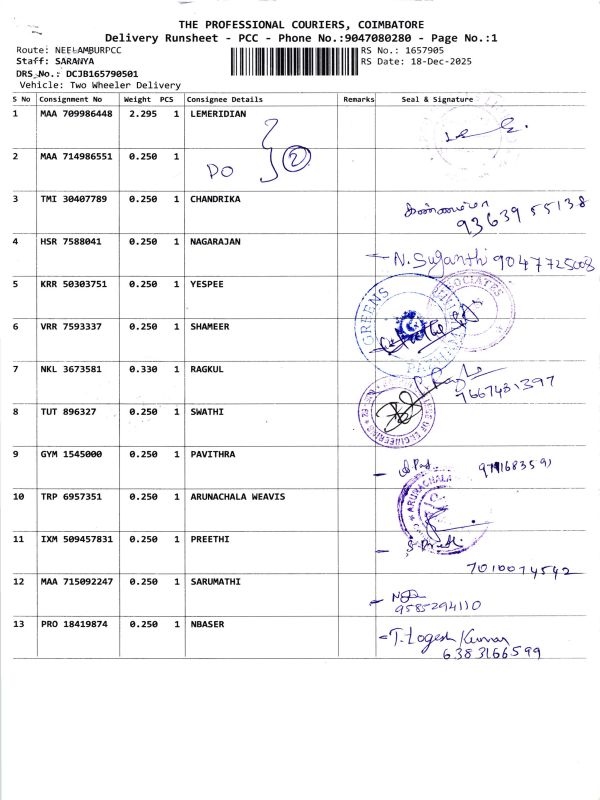 THE PROFESSIONAL COURIERS, COIMBATORE
Delivery Runsheet - PCC - Phone No.:9047080280 - Page No.:1
Route: NEELAMBURPCC RS No.: 1657905
Staff: SARANYA RS Date: 18-Dec-2025
DRS No.: DCJB165790501
Vehicle: Two Wheeler Delivery
S No Consignment No Weight PCS Consignee Details Remarks Seal & Signature
1 MAA 709986448 2.295 1 LEMERIDIAN
2 MAA 714986551 0.250 1
DO 2
3 TMI 30407789 0.250 1 CHANDRIKA
93639 55138
4 HSR 7588041 0.250 1 NAGARAJAN
- N. Suganthi 9047725008
5 KRR 50303751 0.250 1 YESPEE
GREENS
6 VRR 7593337 0.250 1 SHAMEER
7 NKL 3673581 0.330 1 RAGKUL
7667481397
8 TUT 896327 0.250 1 SWATHI
OF ENGINEERING
9 GYM 1545000 0.250 1 PAVITHRA
10 TRP 6957351 0.250 1 ARUNACHALA WEAVIS
ARUNACHALA
11 IXM 509457831 0.250 1 PREETHI
7010074542
12 MAA 715092247 0.250 1 SARUMATHI
9585294110
13 PRO 18419874 0.250 1 NBASER
- T. Logesh Kumar
6383166599